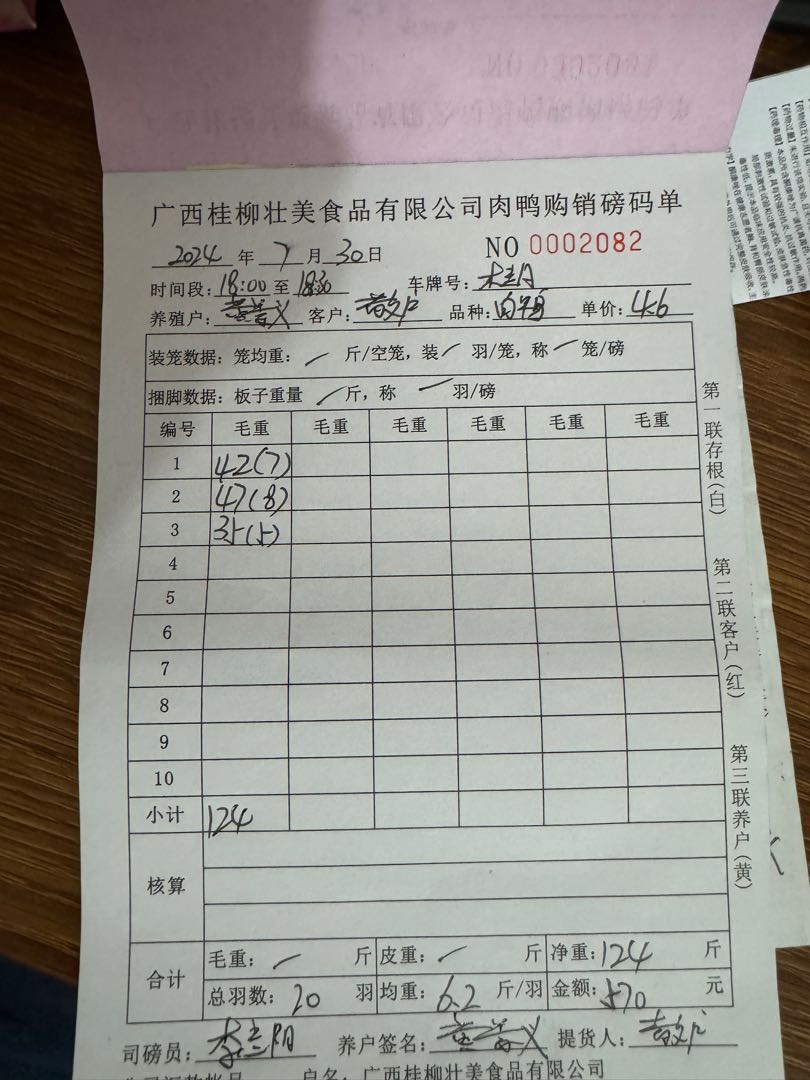 广西桂柳壮美食品有限公司肉鸭购销磅码单
2024 年 7 月 30 日 NO 0002082
时间段: 18:00 至 18:30 车牌号:
养殖户: 黄善义 客户: 品种: 白鸭 单价: 4.6
装笼数据: 笼均重: / 斤/空笼, 装 / 羽/笼, 称 / 笼/磅
捆脚数据: 板子重量 / 斤, 称 / 羽/磅
编号 毛重 毛重 毛重 毛重 毛重 毛重
1 42(7)
2 47(8)
3 35(5)
4
5
6
7
8
9
10
小计 124
核算
合计 毛重: / 斤 皮重: / 斤 净重: 124 斤
总羽数: 20 羽 均重: 6.2 斤/羽 金额: 570 元
司磅员: 养户签名: 黄善义 提货人:
户名: 广西桂柳壮美食品有限公司
第一联存根(白)
第二联客户(红)
第三联养户(黄)